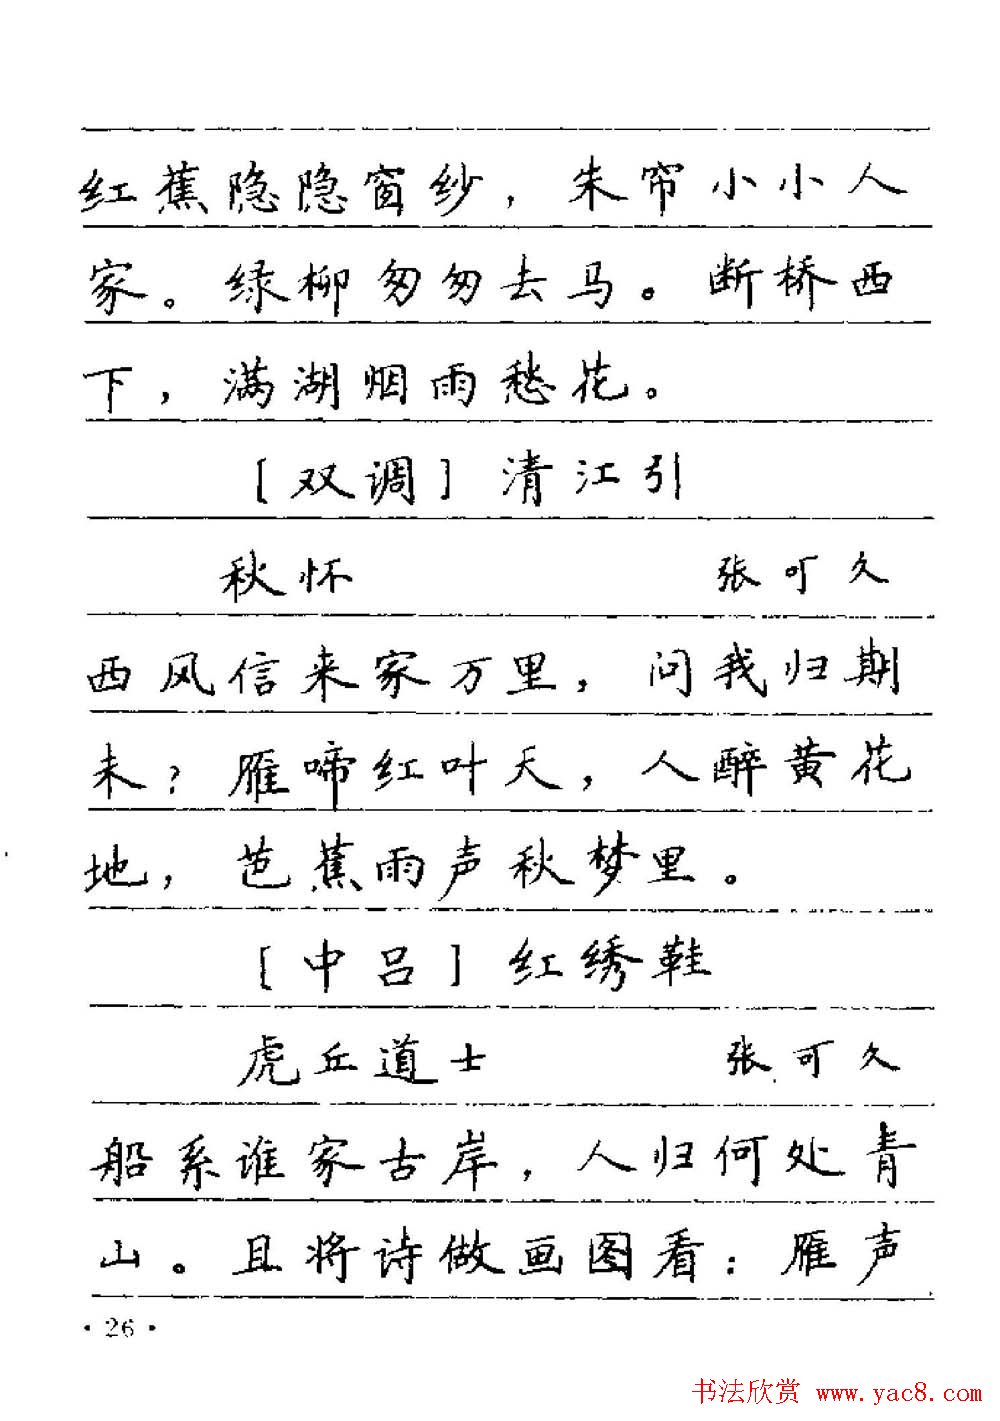 红蕉隐隐窗纱，朱帘小小人
家。绿柳匆匆去马。断桥西
下，满湖烟雨愁花。
［双调］清江引
秋怀 张可久
西风信来家万里，问我归期
未？雁啼红叶天，人醉黄花
地，芭蕉雨声秋梦里。
［中吕］红绣鞋
虎丘道士 张可久
船系谁家古岸，人归何处青
山。且将诗做画图看：雁声
·26·
书法欣赏 www.yac8.com